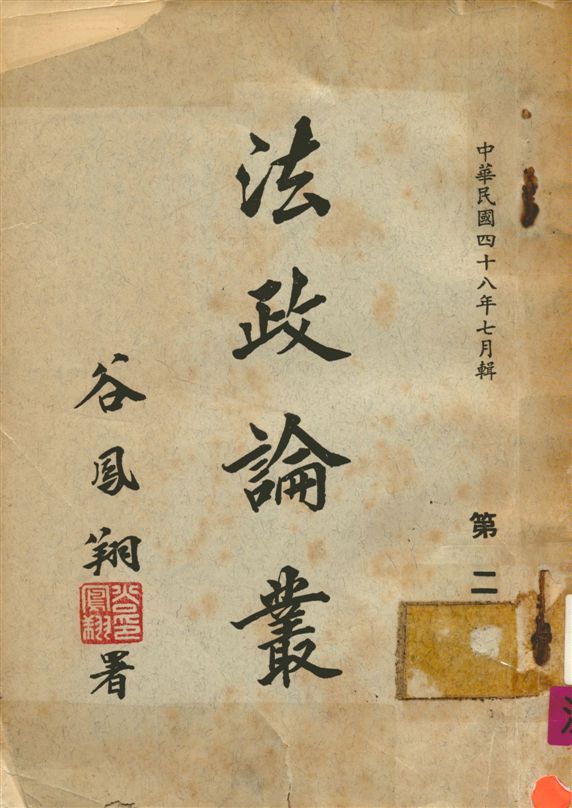 中華民國四十八年七月輯
第二
法政論叢
谷鳳翔
署